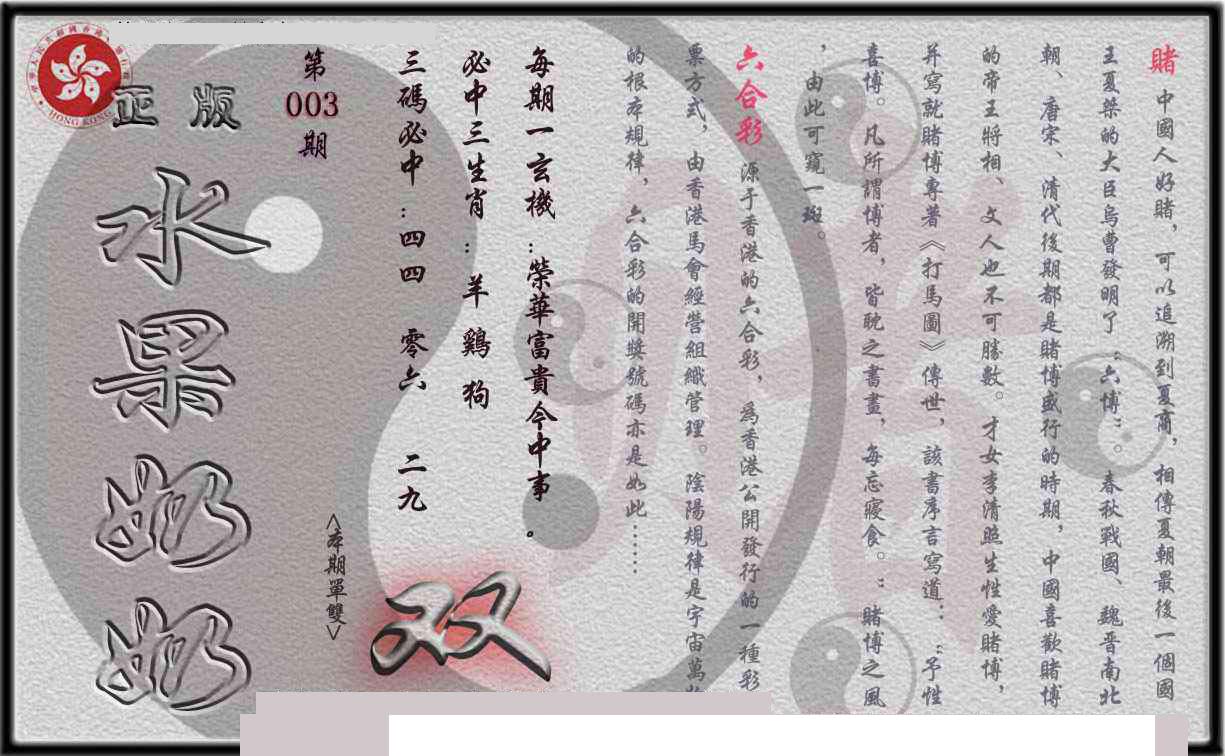 賭 中國人好賭，可以追溯到夏商，相傳夏朝最後一個國
王夏桀的大臣烏曹發明了“六博”。春秋戰國、魏晋南北
朝、唐宋、清代後期都是賭博盛行的時期，中國喜歡賭博
的帝王將相、文人也不可勝數。才女李清照生性愛賭博，
并寫就賭博專著《打馬圖》傳世，該書序言寫道：“予性
喜博。凡所謂博者，皆耽之書畫，每忘寢食。”賭博之風
，由此可窺一斑。
六合彩 源于香港的六合彩，爲香港公開發行的一種彩
票方式，由香港馬會經營組織管理。陰陽規律是宇宙萬物
的根本規律，六合彩的開獎號碼亦是如此……
每期一玄機：榮華富貴今中事。
必中三生肖：羊 鷄 狗
三碼必中：四四 零六 二九
<本期單雙>
双
第
003
期
正版
水果奶奶
HONG KONG